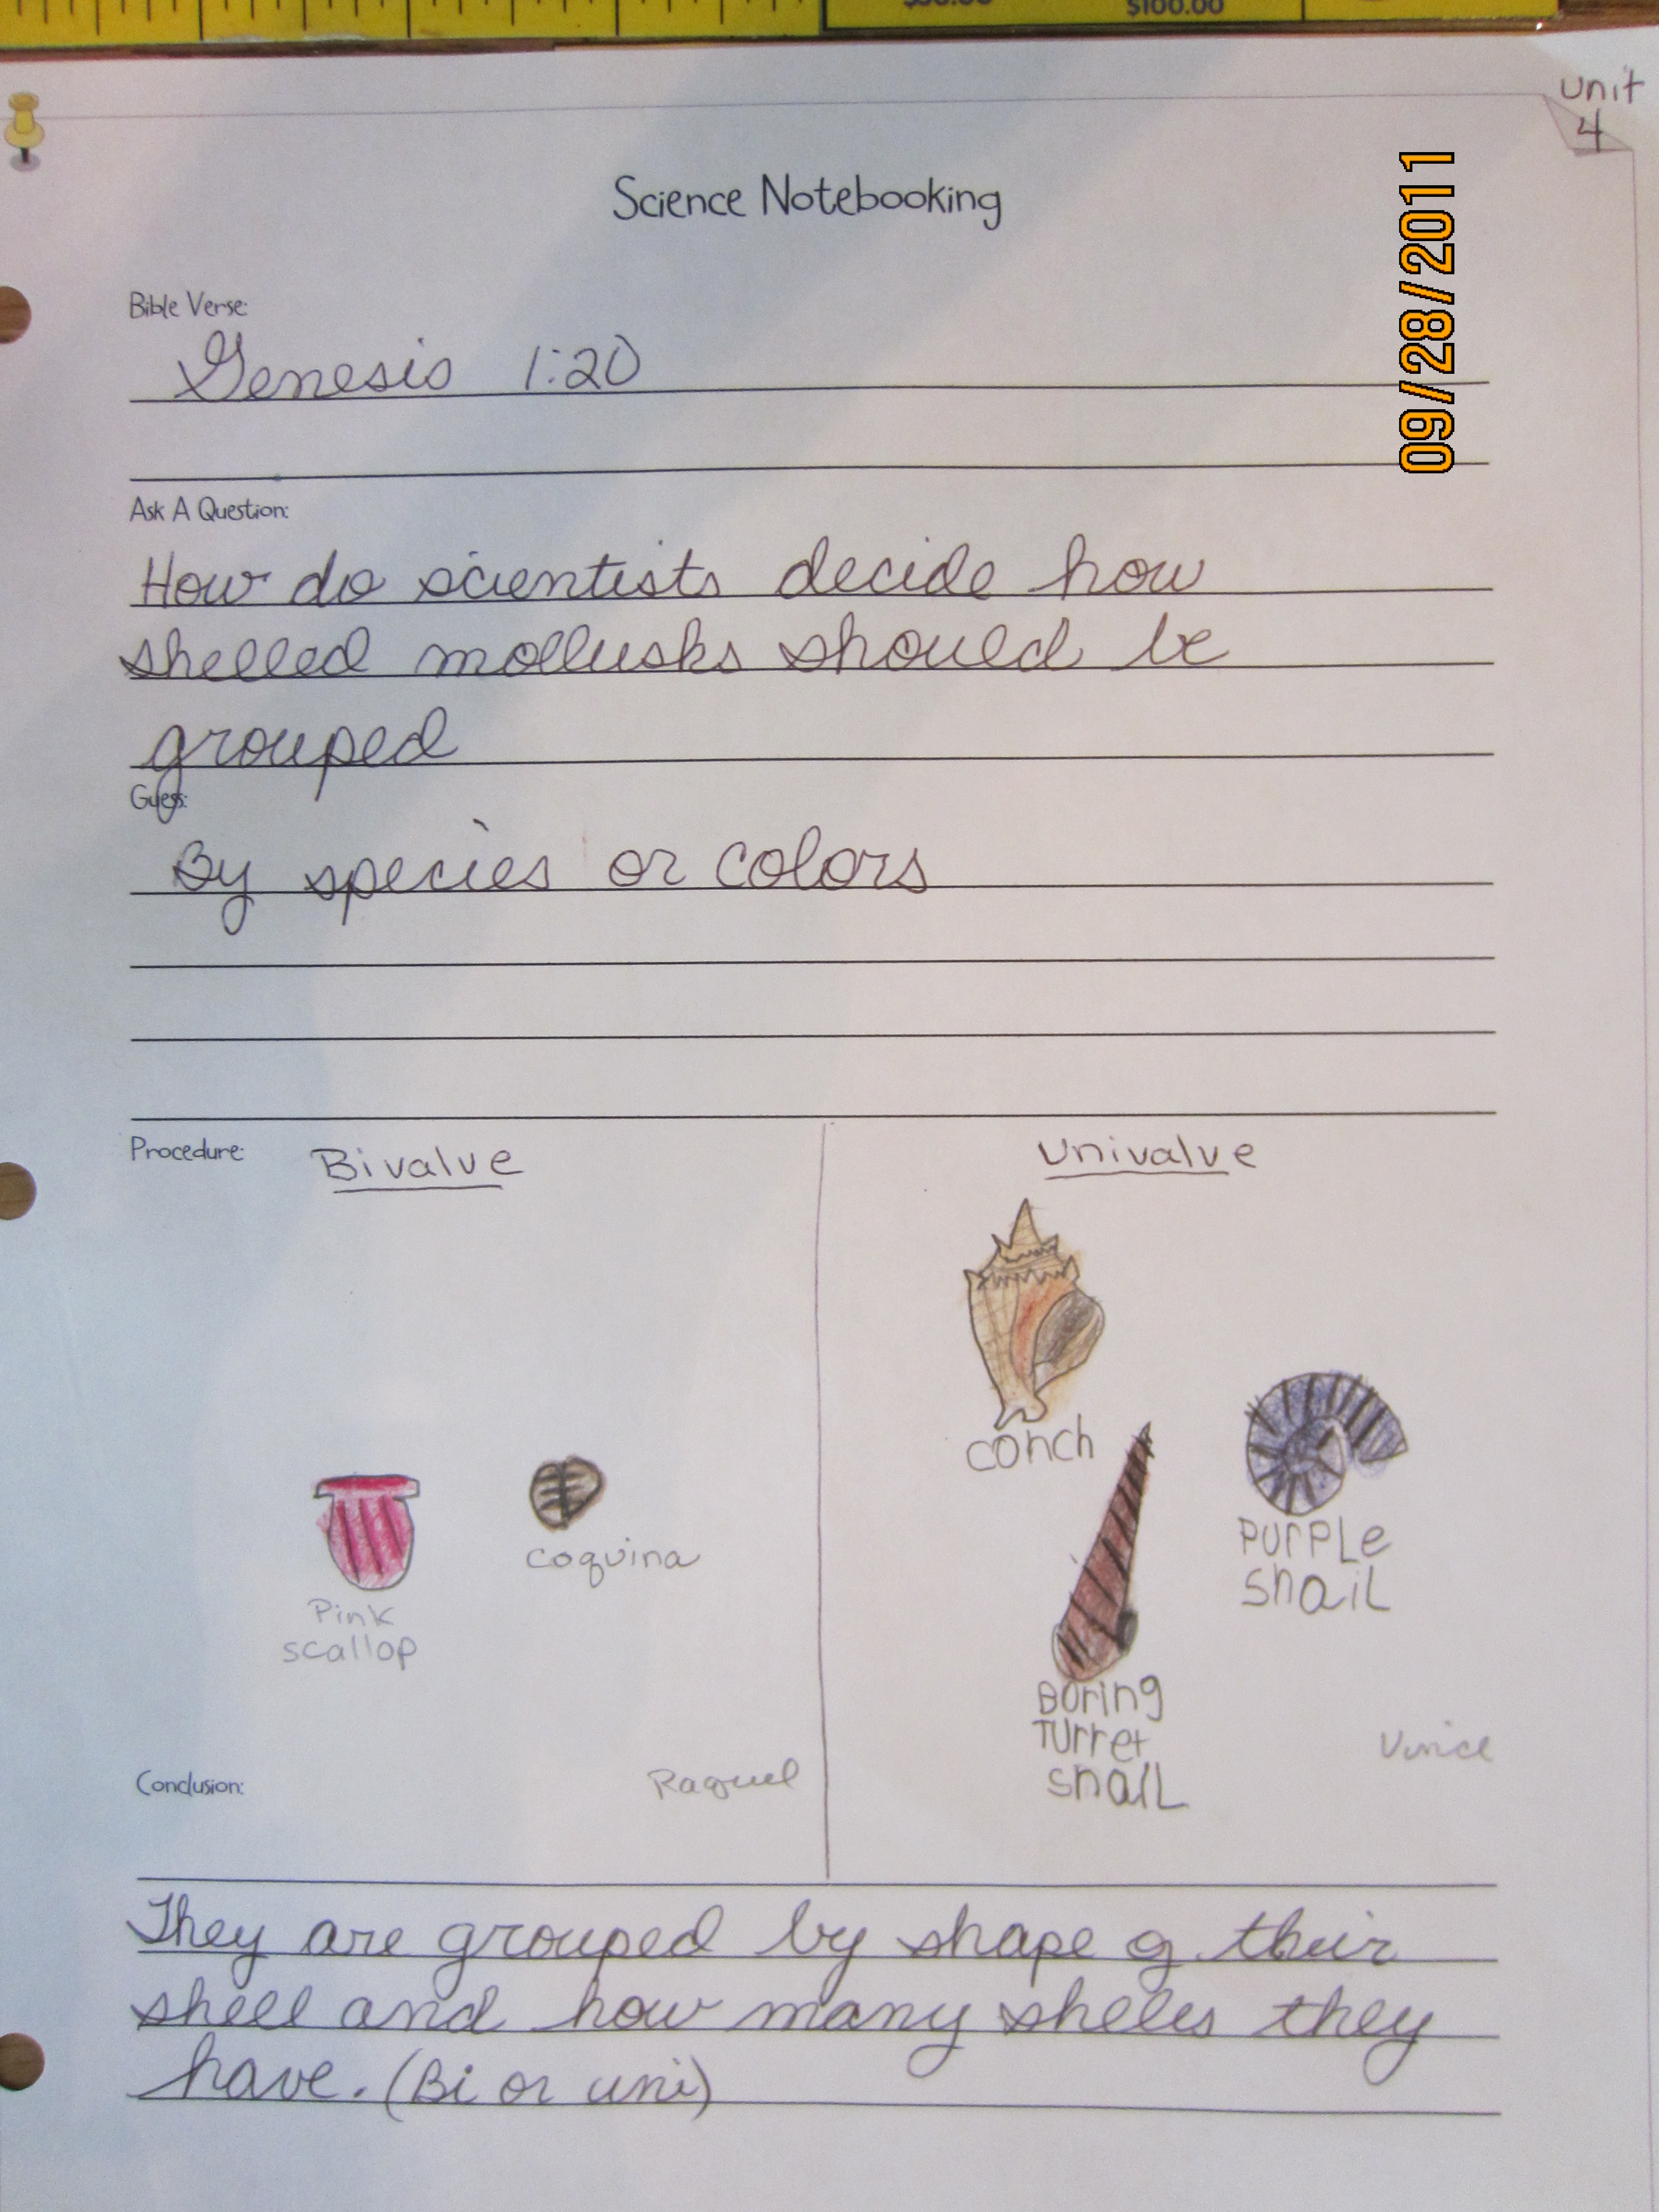 $100.00
unit
4
09/28/2011
Science Notebooking
Bible Verse:
Genesis 1:20
Ask A Question:
How do scientists decide how
shelled mollusks should be
grouped
Guess:
By species or colors
Procedure:
Bivalve
Univalve
conch
PURPLE
snaiL
coquina
Pink
scallop
Boring
Turret
snaiL
Raquel
Conclusion:
They are grouped by shape of their
shell and how many shells they
have. (Bi or uni)